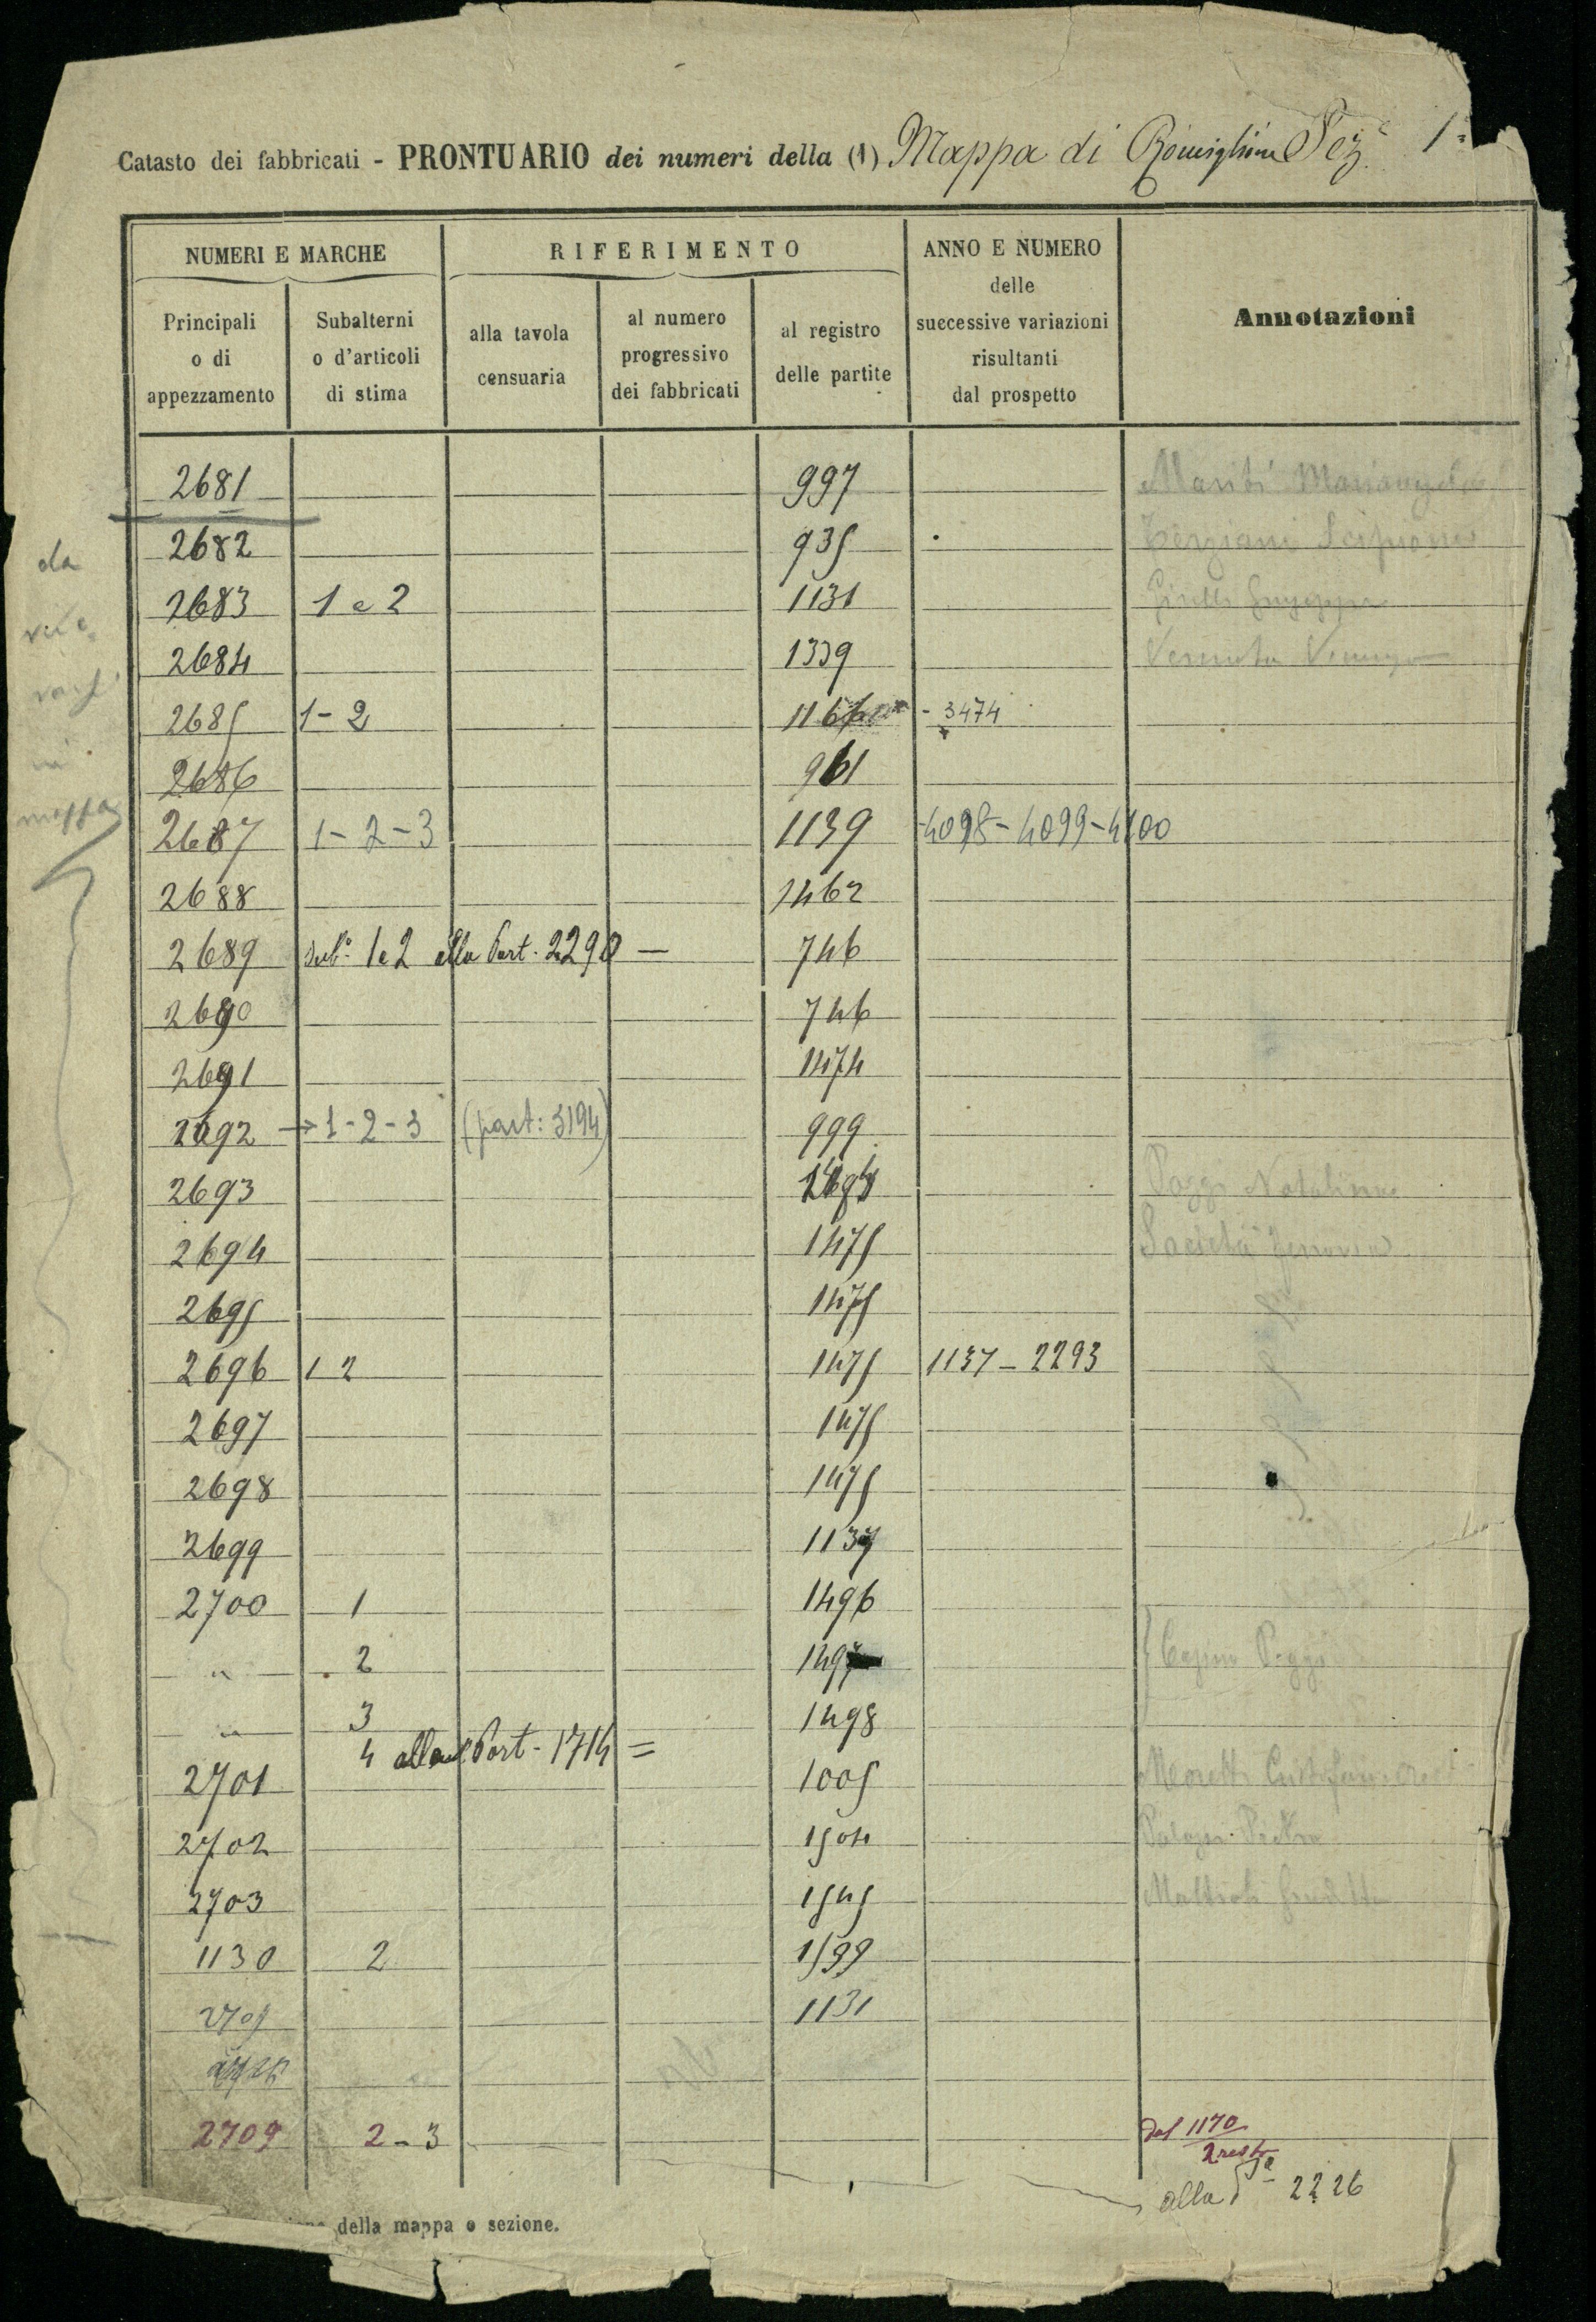 Catasto dei fabbricati - PRONTUARIO dei numeri della (1) Mappa di Ronciglione Sez.e 1a
NUMERI E MARCHE
RIFERIMENTO
ANNO E NUMERO
delle
successive variazioni
risultanti
dal prospetto
Annotazioni
Principali
o di
appezzamento
Subalterni
o d'articoli
di stima
alla tavola
censuaria
al numero
progressivo
dei fabbricati
al registro
delle partite
2681 997 Mariti Mariangela
2682 935 Terziani Scipione
2683 1 e 2 1131 Giuseppe
2684 1339
2685 1-2 116 - 3474
2686 961
2687 1-2-3 1139 -4098-4099-4100
2688 1462
2689 sub. 1 e 2 alla Part. 2290 — 746
2690 746
2691 1474
2692 → 1-2-3 (part: 3194) 999
2693 Natalina
2694 1475 Società
2695 1475
2696 1 2 1475 1137 - 2293
2697 1475
2698 1475
2699 1137
2700 1 1496
" 2 1497
" 3 1498
4 alla Part. 1714 =
2701 1005 Moretti
2702 1504
2703 1545 Giuditta
1130 2 1599
2705 1131
2709 2-3 dal 1170
2 resto
alla 2226
della mappa o sezione.
da
in
mappa